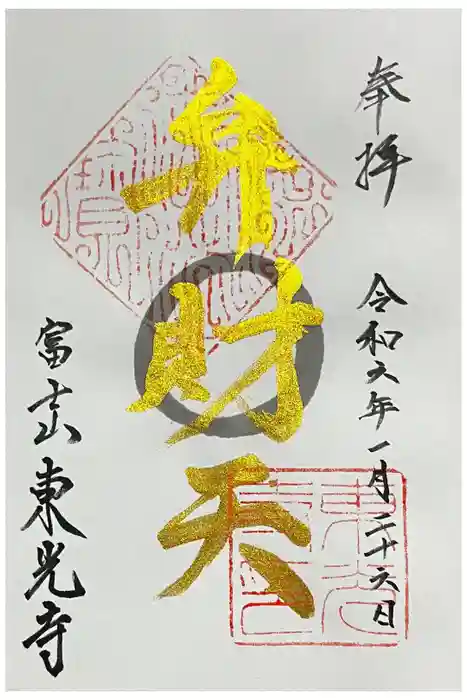 奉拝
令和六年一月二十六日
弁財天
富士山東光寺